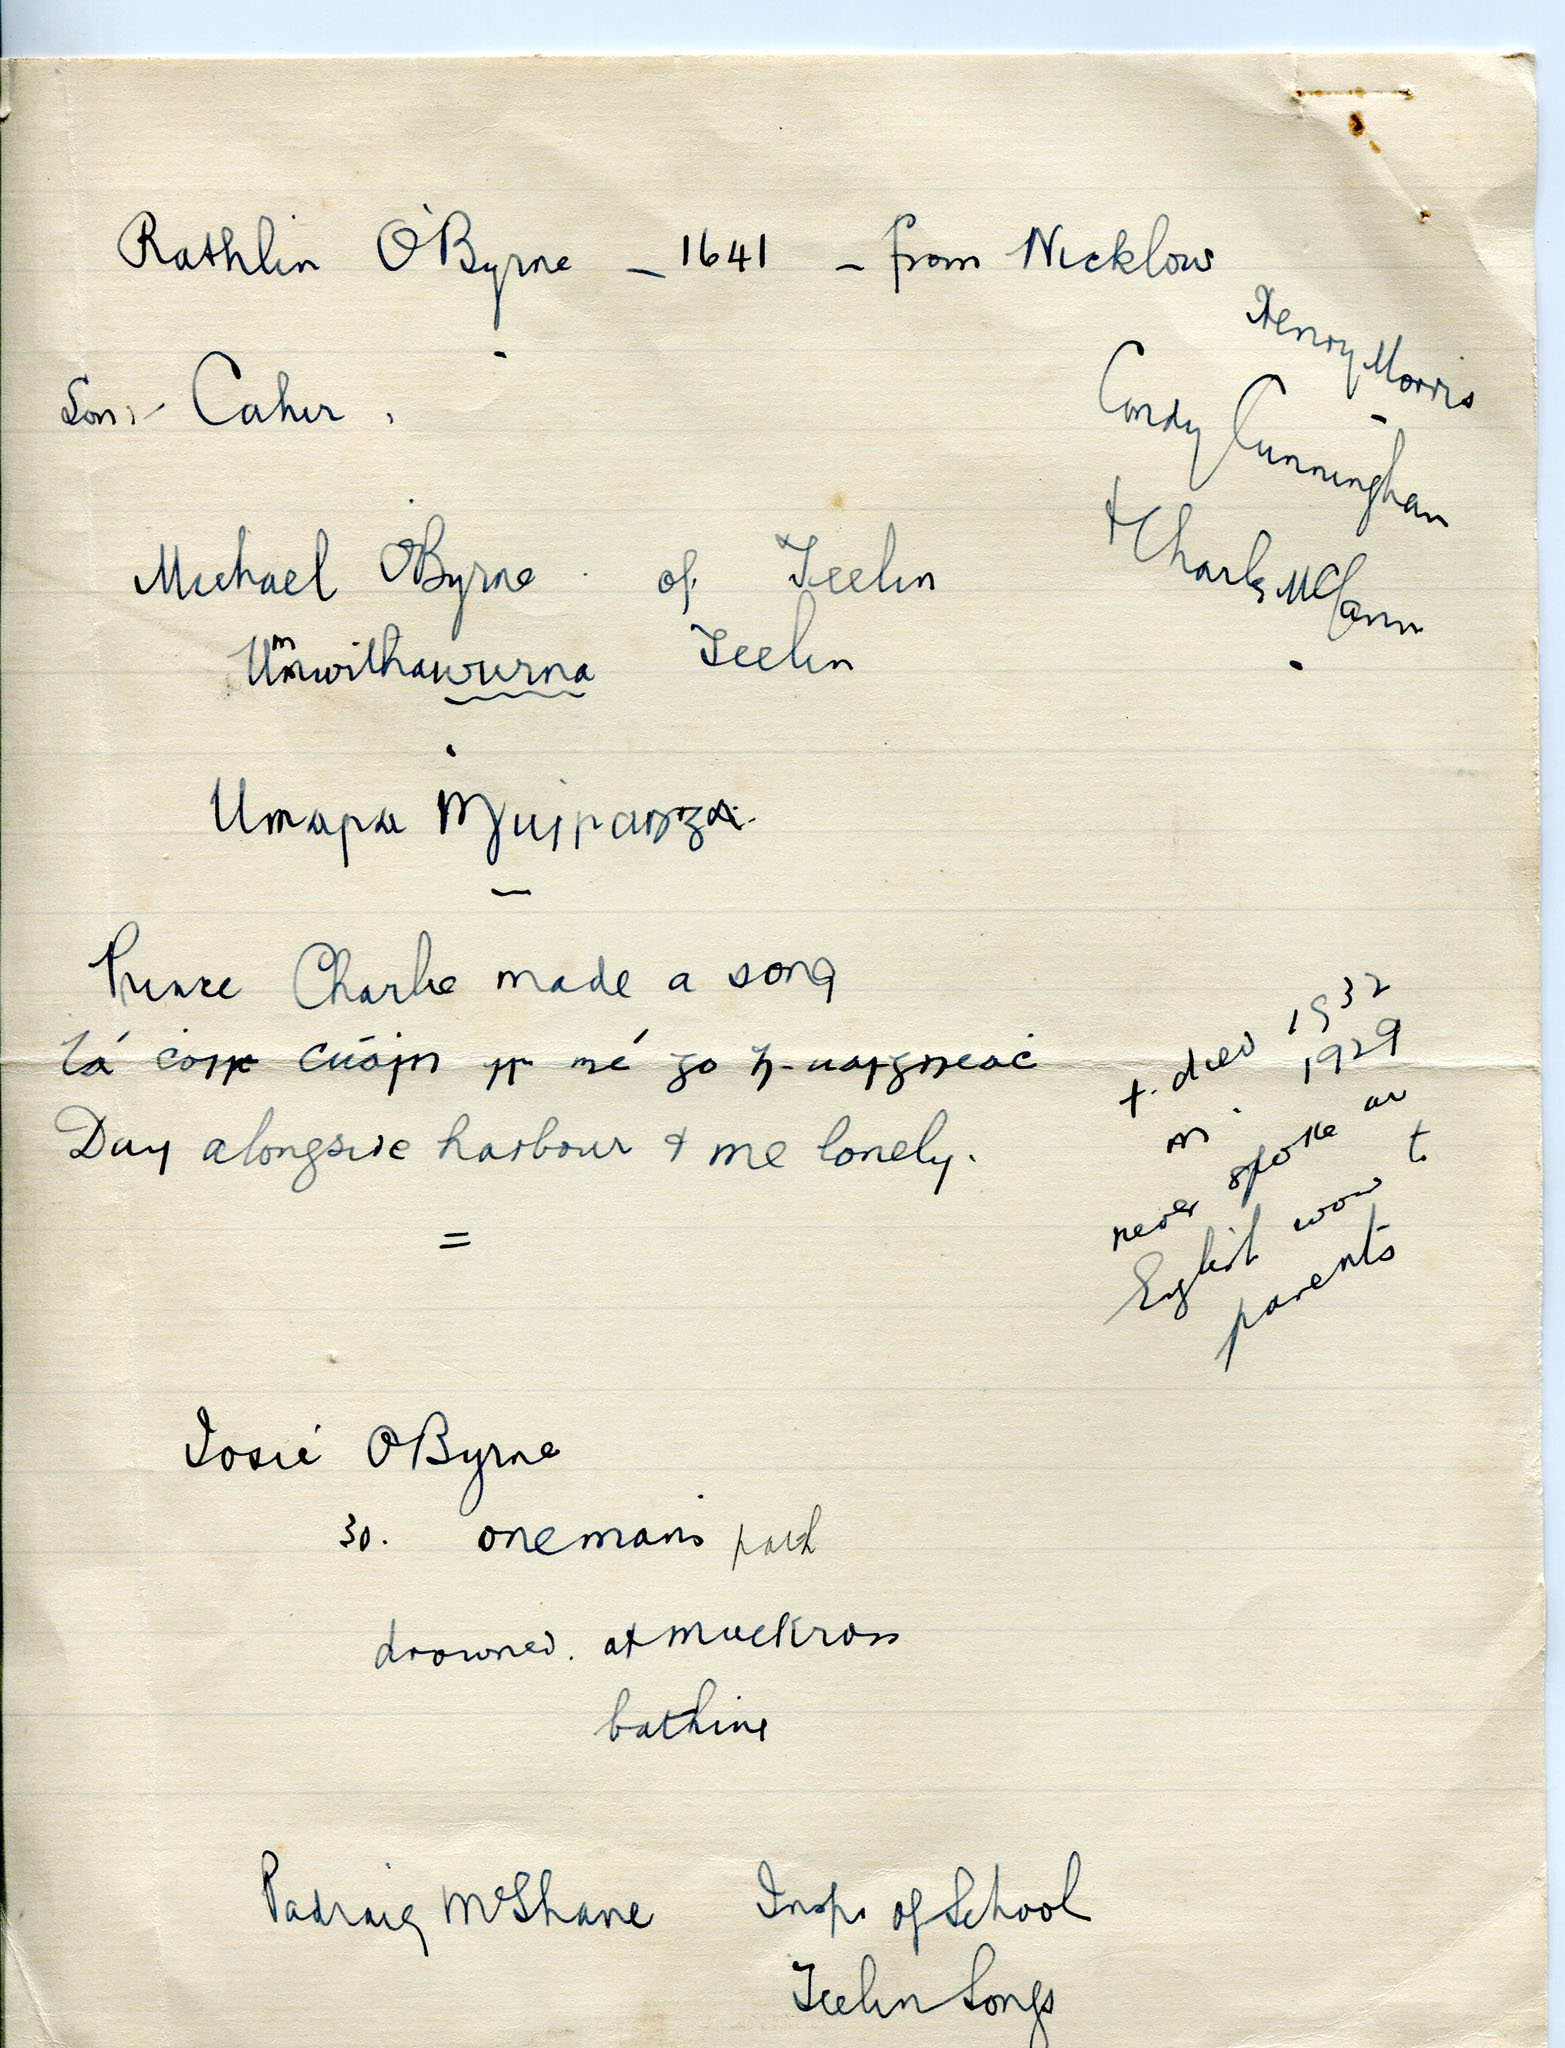 Rathlin O'Byrne - 1641 - from Wicklow
Son:- Cahir.
Henry Morris
Condy Cunningham
+ Charles McCann
Michael O'Byrne of Teelin
Teelin
Prince Charlie made a song
lá cois cuain is mé go h-uaigneach
Day alongside harbour + me lonely.
=
+. died 1932
m. 1929
never spoke an
English word t.
parents
Josie O'Byrne
30. onemans path
drowned. at Muckross
bathing
Padraig McShane Insp. of School
Teelin Songs